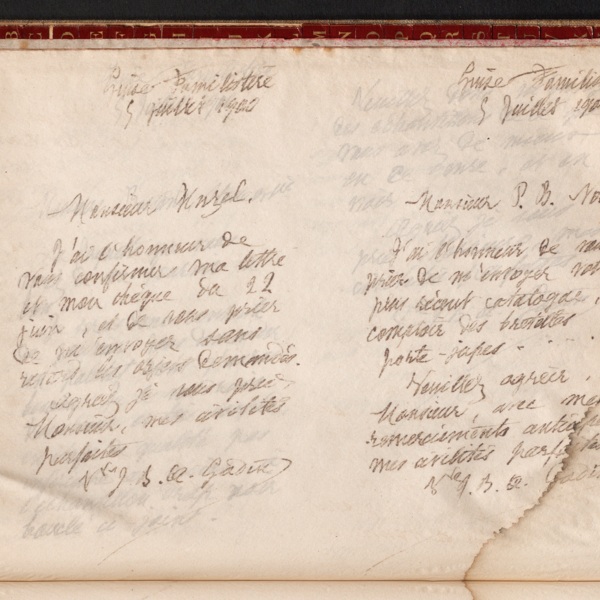 Guise Familistère
5 juillet 1900
Monsieur Murel,
J'ai l'honneur de
vous confirmer ma lettre
et mon chèque du 22
juin, et de vous prier
de m'envoyer sans
retard les objets commandés.
Agréez je vous prie,
Monsieur, mes civilités
parfaites
Vve J. B. A. Godin
Guise Familis
5 juillet 190
Monsieur P. B. No
J'ai l'honneur de vous
prier de m'envoyer vot
plus récent catalogue,
comptoir des
porte-jupes
Veuillez agréer,
Monsieur, avec mes
remerciements anticipés
mes civilités parf
Vve J. B. A. Godin